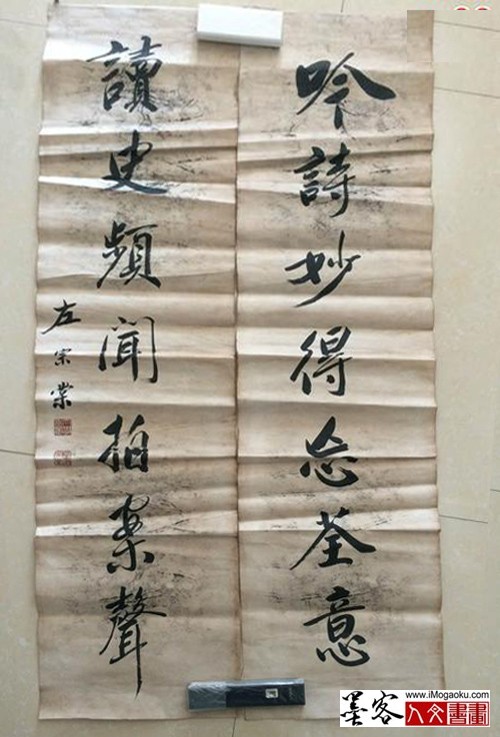 吟詩妙得忘荃意
讀史頻聞拍案聲
左宗棠
墨客
www.iMogaoku.com
人文書畫